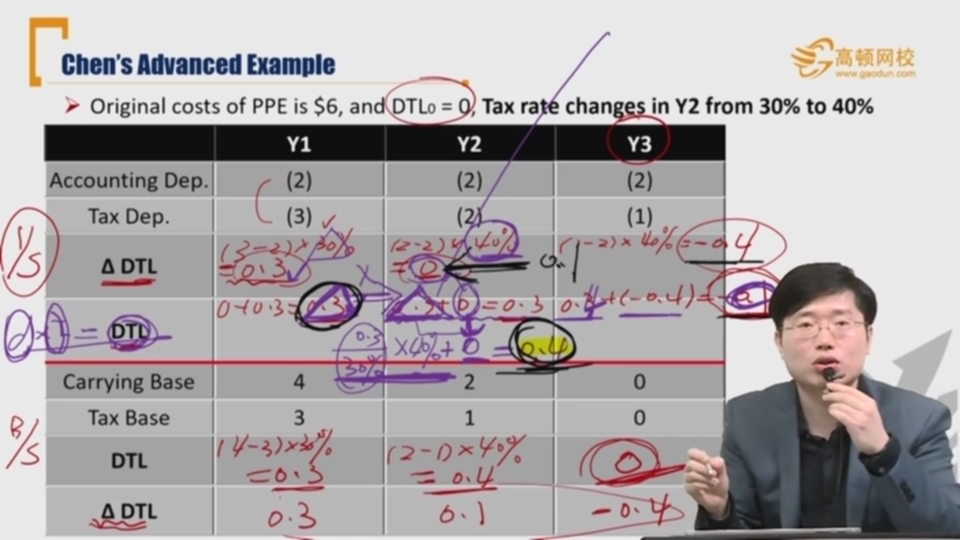 Chen's Advanced Example
高顿网校
www.gaodun.com
➤ Original costs of PPE is $6, and DTL₀ = 0, Tax rate changes in Y2 from 30% to 40%
Y1 Y2 Y3
Accounting Dep. (2) (2) (2)
Tax Dep. (3) (2) (1)
I/S
(3-2)×30% (2-2)× 40% -2)×40% = -0.4
Δ DTL = 0.3 = 0
0+0.3= 0.3 + 0 = 0.3 +(-0.4)=
= DTL
0.3
30% ×40% + 0 = 0.4
Carrying Base 4 2 0
Tax Base 3 1 0
B/S
(4-3)×30% (2-1)×40%
DTL = 0.3 = 0.4 0
Δ DTL 0.3 0.1 -0.4